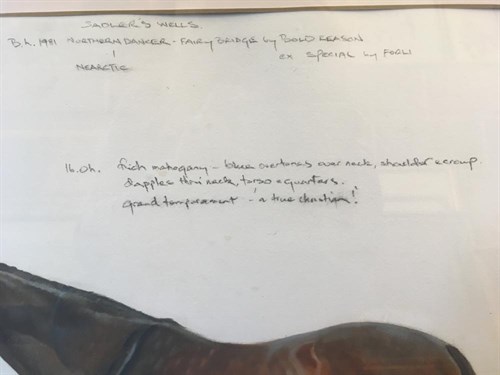 SADLER'S WELLS.
B.h. 1981 NORTHERN DANCER - FAIRY BRIDGE by BOLD REASON
NEARCTIC
ex SPECIAL by FORLI
16.0h. Rich mahogany - blue overtones over neck, shoulder & croup.
dapples thru neck, torso & quarters.
grand temperament - 'a true christian!'